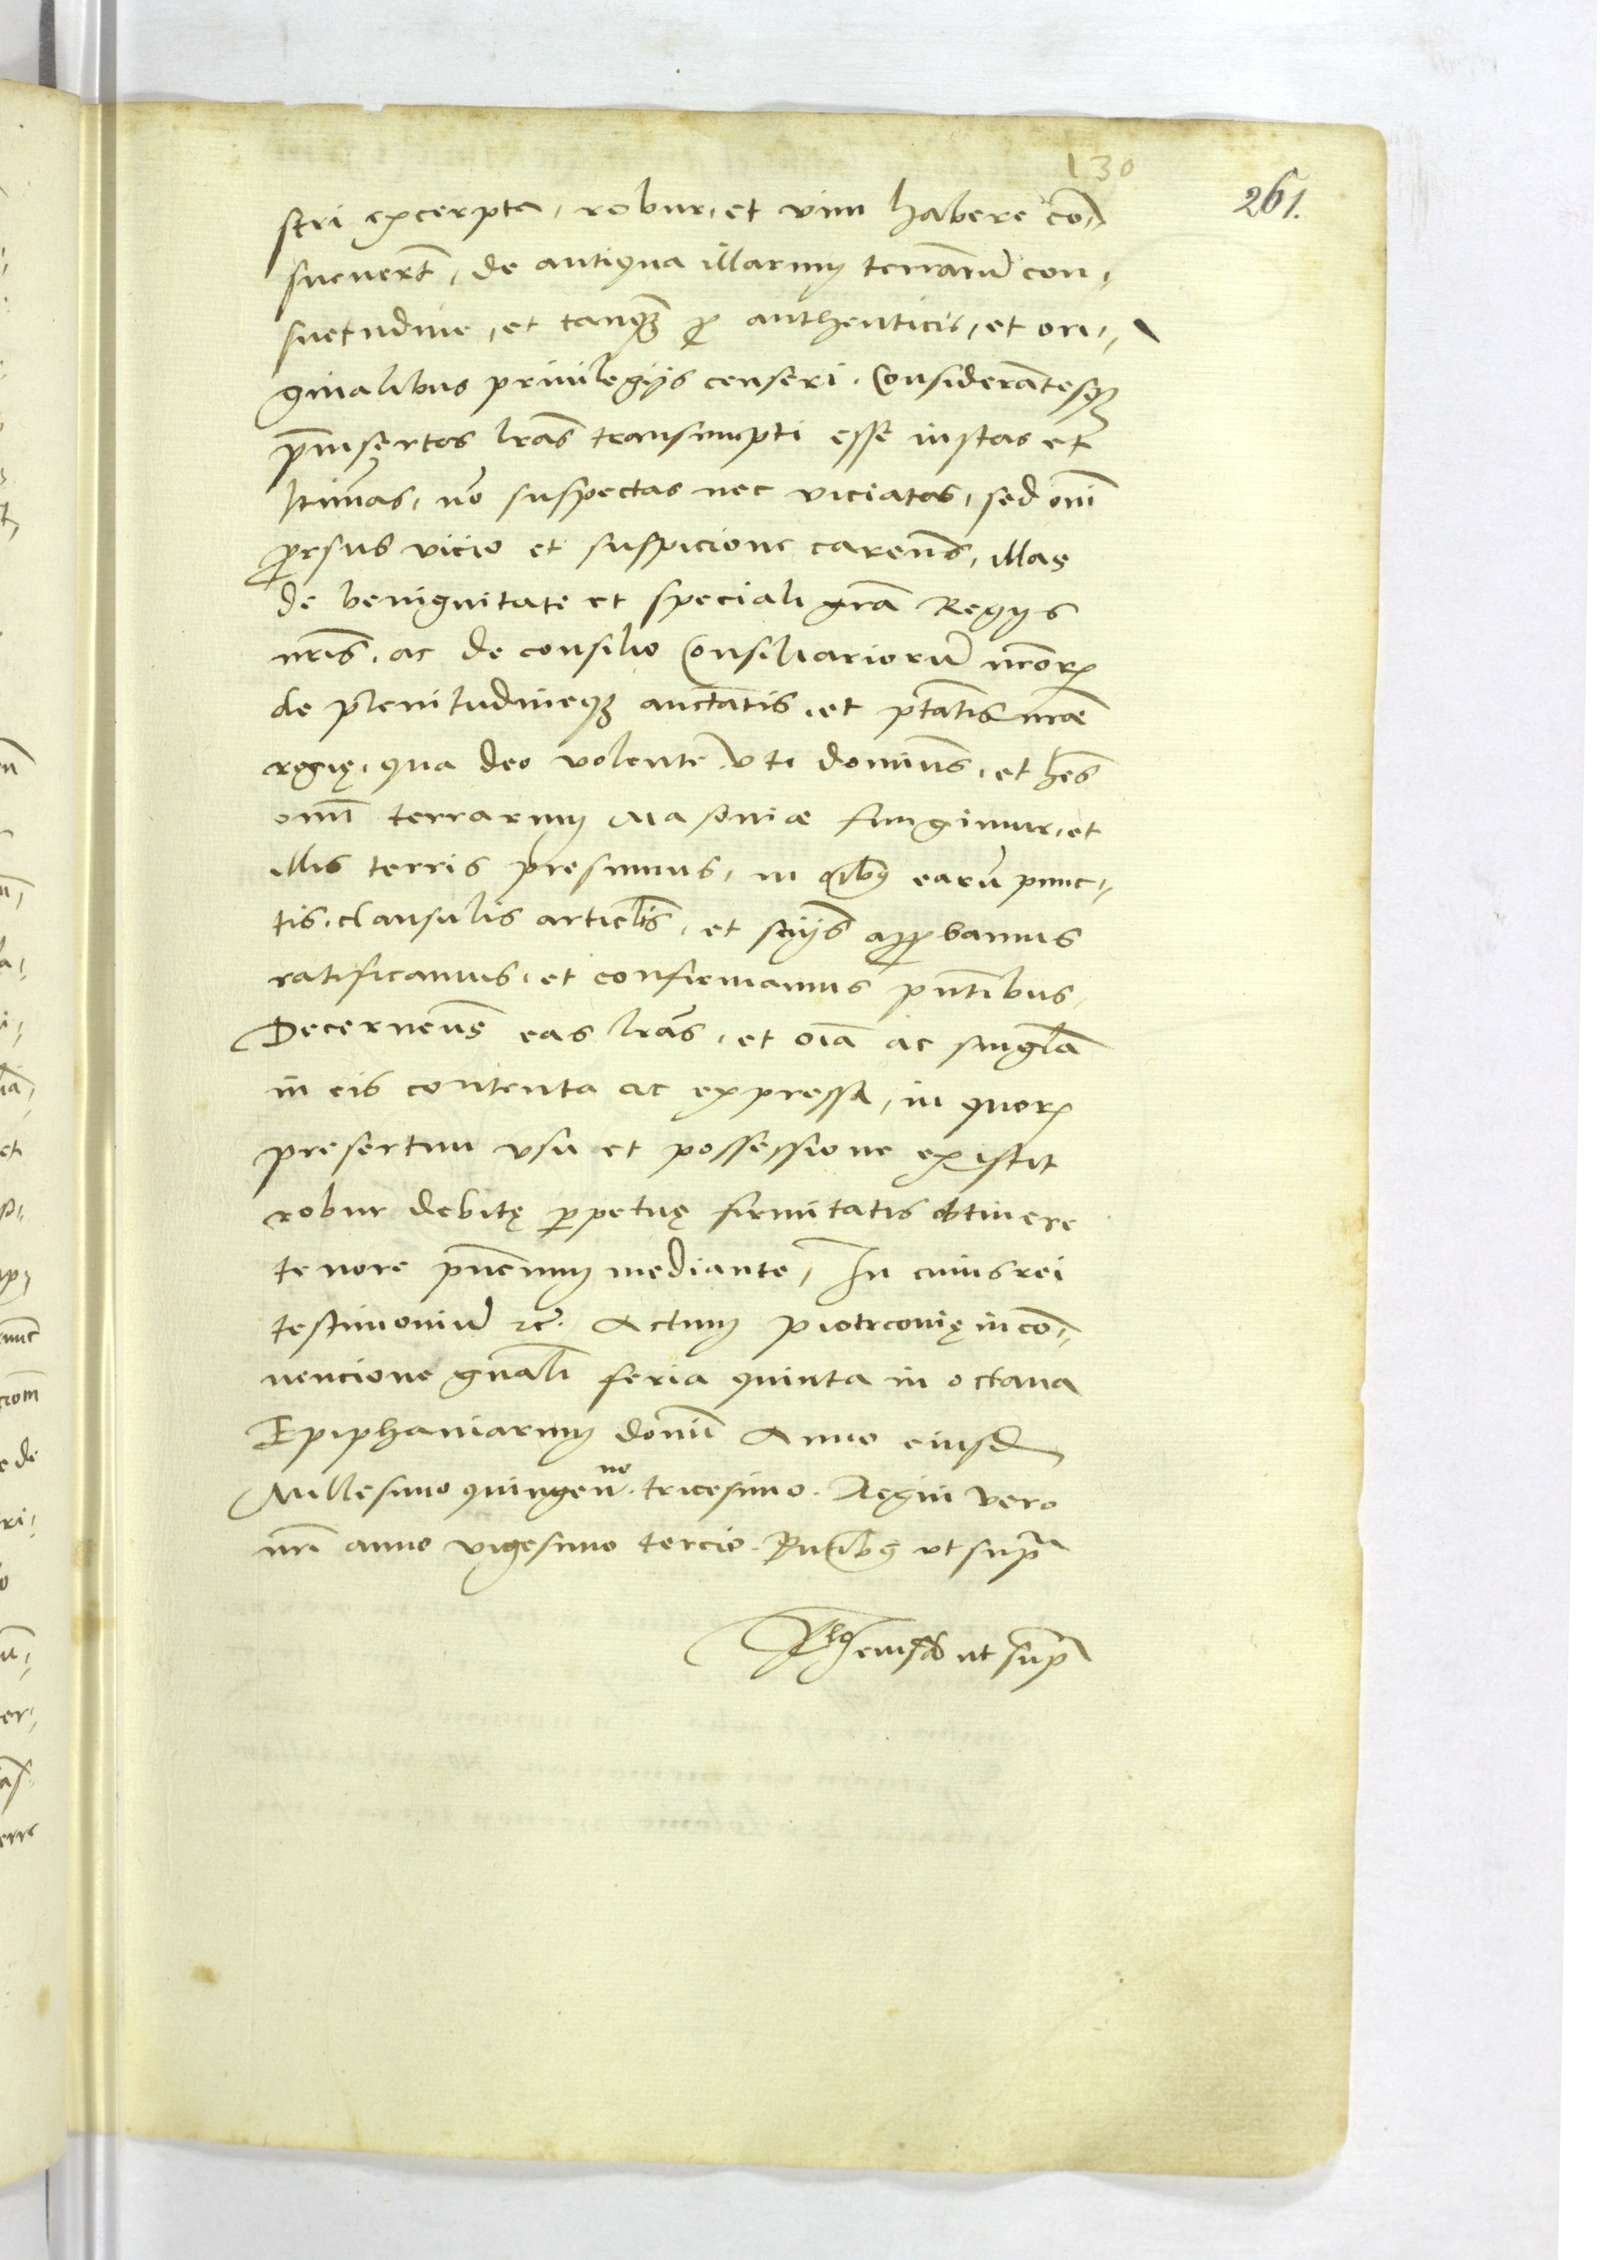 130
261.
stri excerpta, robur, et vim habere cõ,,
suevert̃, de antiqua illarum terrarũ con,,
suetudine, et tanq̃ȝ p̱ authenticis, et ori,,
ginalibus privilegijs censeri. Considerãtesqȝ
p̃insertas lrãs transumpti esse iustas et
ltimas, nõ suspectas nec viciatas, sed om̃i
p̱rsus vicio et suspicione careñs, illas
de benignitate et speciali grã Regijs
nrĩs, ac de consilio Consiliariorũ nrõrꝝ
de plenitudineqȝ auctãtis, et ptãtis nrãe
regię, qua deo volente uti domiñs, et hẽs
om̃i terrarum Masoviæ fungimur, et
illis terris presumus, in oĩbꝰ earũ punc,,
tis, clausulis articl̃is, et snĩjs app̱bamus
ratificamus, et confirmamus pñtibus,
Decerneñs eas lrãs, et oĩa ac singl̃a
in eis contenta ac expressa, in quorꝝ
presertim usu et possessione existit
robur debitę p̱petuę firmitatis obtinere
tenore pñcium mediante, In cuius rei
testimoniũ ꝛc̃. Actum Piotrcovię in cõ,,
vencione gñali feria quinta in octava
Epiphaniarum domĩ Anno eiusd
Millesimo quingen̄no. tricesimo. Regni vero
nrĩ anno vigesimo tercio. Pñtibꝰ ut supᵃ
eiusd ut supᵃ